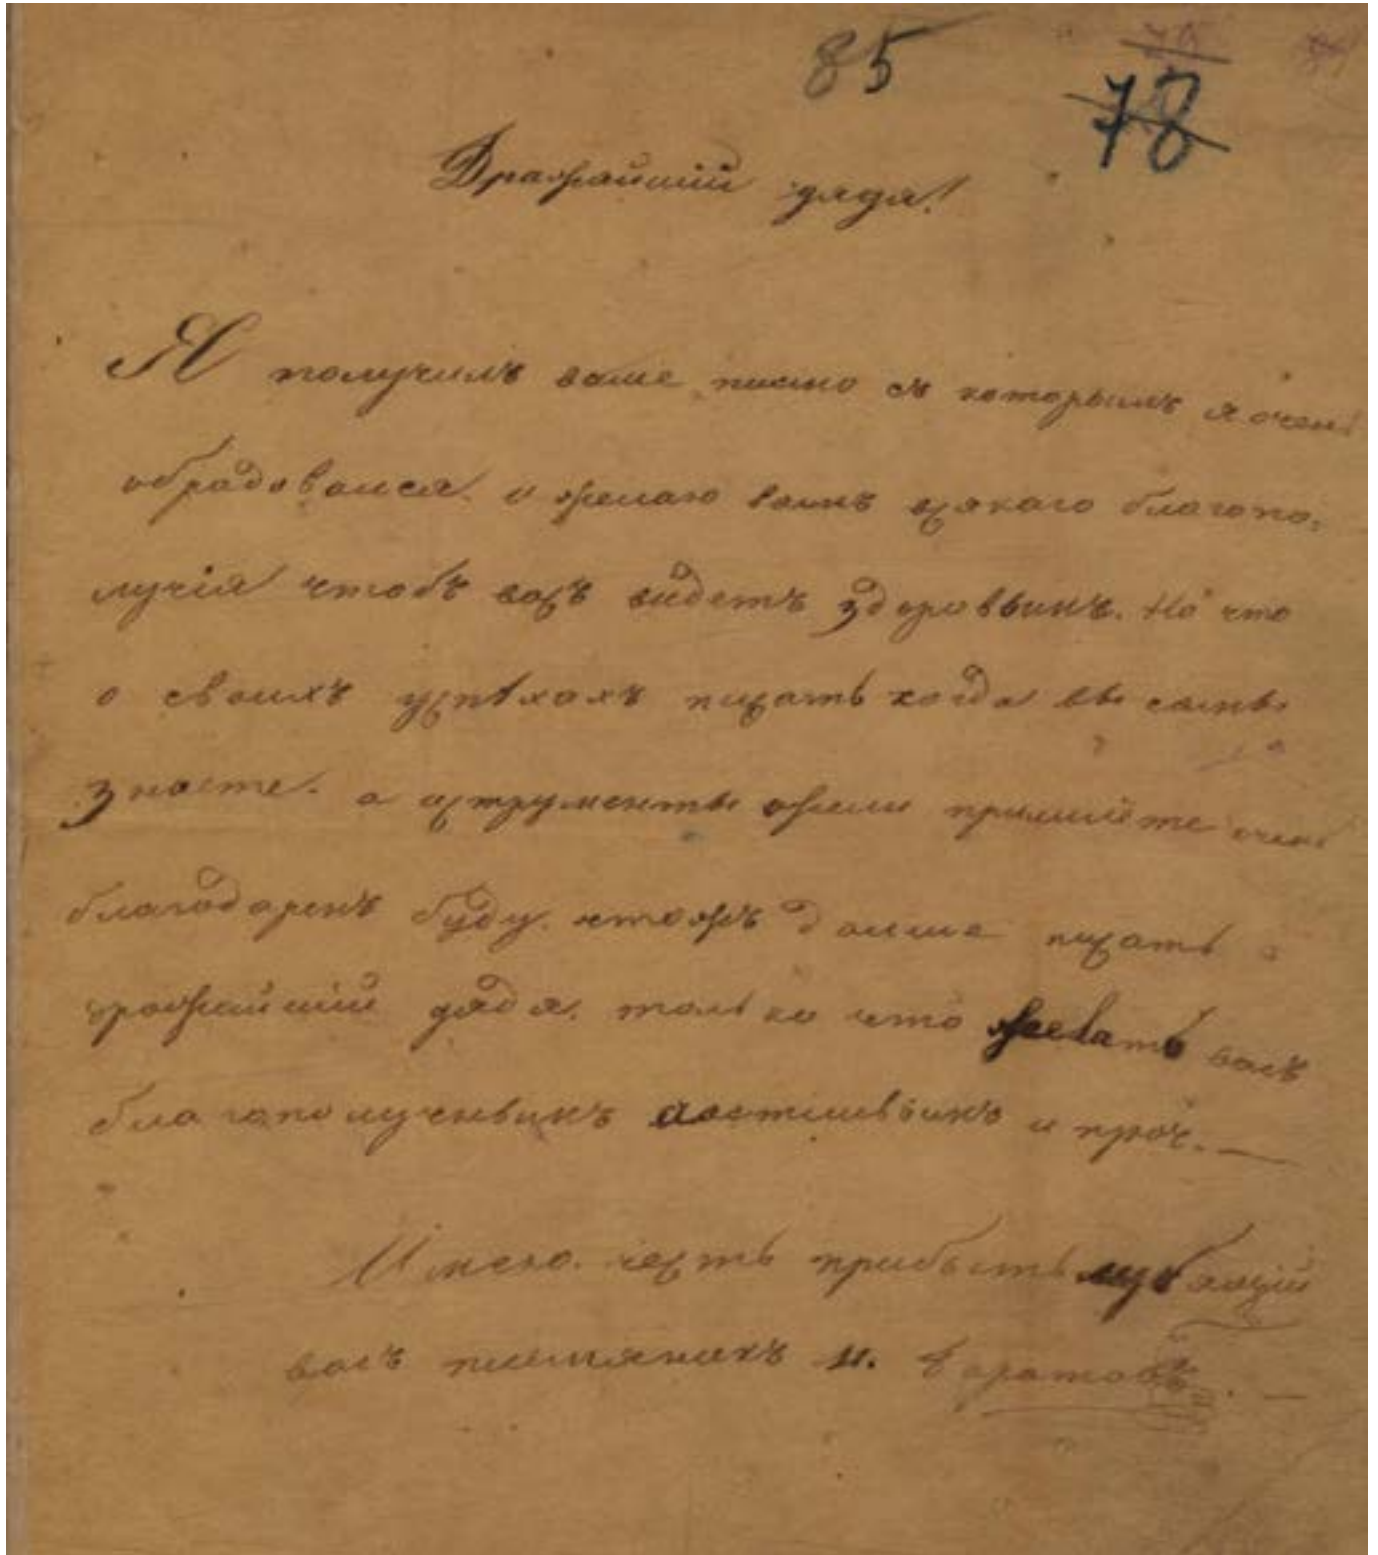 85
78
Дражайшій дядя!
Я получилъ ваше писмо съ которымъ я очень
обрадовался. и желаю вамъ всякаго благопо-
лучія чтобъ васъ видетъ здороввымъ. Но что
о своихъ успѣхахъ писать когда вы самы
знаете. а иструменты ежели пришлёте очень
благодаренъ буду. чтожъ далше писать
дражайшій дядя. только что желать васъ
благополучнвымъ и проч.
Имею. честь прибыть
васъ племяникъ И.